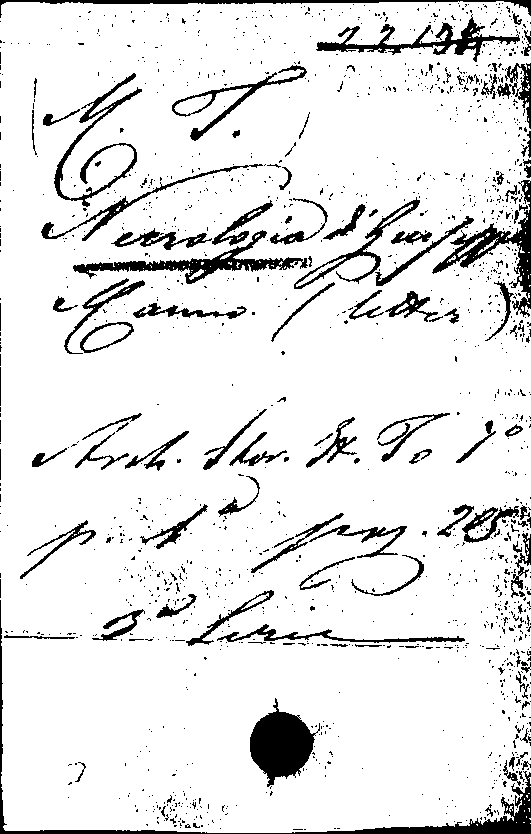 M. T.
Necrologia di Giuseppe
Manno. (letter)
Arch. Stor. It. To 7º
p. 1ª pag. 205
3ª Serie